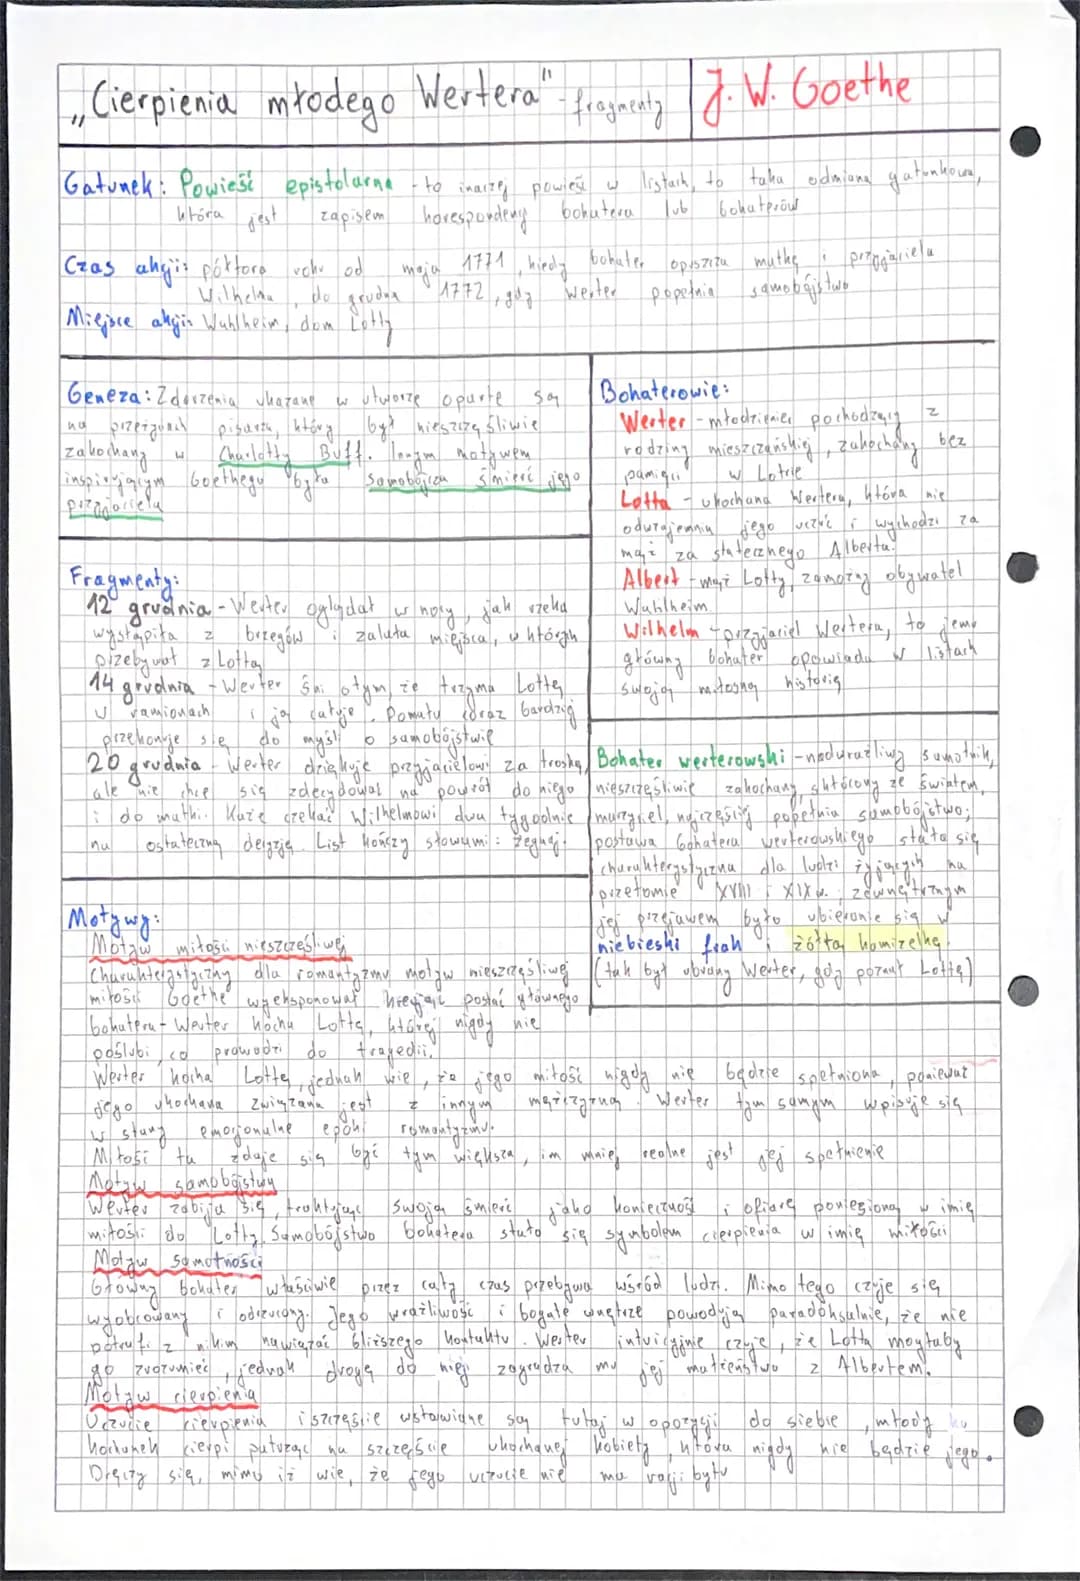 „Cierpienia młodego Wertera" - fragmenty
J. W. Goethe
Gatunek: Powieść epistolarna - to inaczej powieść w listach, to taka odmiana gatunkowa,
która jest zapisem korespondencji bohatera lub bohaterów
Czas akcji: półtora roku od maja 1771, kiedy bohater opuszcza matkę i przyjaciela
Wilhelma, do grudnia 1772, gdy Werter popełnia samobójstwo
Miejsce akcji: Wahlheim, dom Lotty
Geneza: Zdarzenia ukazane w utworze oparte są
na przeżyciach pisarza, który był nieszczęśliwie
zakochany w Charlotty Buff. Innym motywem
inspirującym Goethego była samobójcza śmierć jego
przyjaciela
Fragmenty:
12 grudnia - Werter oglądał w nocy, jak rzeka
wystąpiła z brzegów i zalała miejsca, w których
przebywał z Lottą
14 grudnia - Werter śni o tym, że trzyma Lottę
w ramionach i ją całuje. Pomału coraz bardziej
przekonuje się do myśli o samobójstwie
20 grudnia - Werter dziękuje przyjacielowi za troskę,
ale nie chce się zdecydować na powrót do niego
i do matki. Każe czekać Wilhelmowi dwa tygodnie
na ostateczną decyzję. List kończy słowami: żegnaj.
Bohaterowie:
Werter - młodzieniec pochodzący z
rodziny mieszczańskiej, zakochany bez
pamięci w Lotcie
Lotta - ukochana Wertera, która nie
odwzajemnia jego uczuć i wychodzi za
mąż za statecznego Alberta.
Albert - mąż Lotty, zamożny obywatel
Wahlheim
Wilhelm - przyjaciel Wertera, to jemu
główny bohater opowiada w listach
swoją miłosną historię
Bohater werterowski - nadwrażliwy samotnik,
nieszczęśliwie zakochany, skłócony ze światem,
marzyciel, najczęściej popełnia samobójstwo;
postawa bohatera werterowskiego stała się
charakterystyczna dla ludzi żyjących na
przełomie XVIII i XIX w. zewnętrznym
jej przejawem było ubieranie się w
niebieski frak i żółtą kamizelkę.
(tak był ubrany Werter, gdy poznał Lottę)
Motywy:
Motyw miłości nieszczęśliwej
Charakterystyczny dla romantyzmu motyw nieszczęśliwej
miłości Goethe wyeksponował kreując postać głównego
bohatera - Werter kocha Lottę, której nigdy nie
poślubi, co prowadzi do tragedii.
Werter kocha Lottę, jednak wie, że jego miłość nigdy nie będzie spełniona, ponieważ
jego ukochana związana jest z innym mężczyzną. Werter tym samym wpisuje się
w stany emocjonalne epoki romantyzmu.
Miłość ta zdaje się być tym większa, im mniej realne jest jej spełnienie
Motyw samobójstwa
Werter zabija się, traktując swoją śmierć jako konieczność i ofiarę poniesioną w imię
miłości do Lotty. Samobójstwo bohatera stało się symbolem cierpienia w imię miłości
Motyw samotności
Główny bohater właściwie przez cały czas przebywa wśród ludzi. Mimo tego czuje się
wyobcowany i odrzucony. Jego wrażliwość i bogate wnętrze powodują paradoksalnie, że nie
potrafi z nikim nawiązać bliższego kontaktu. Werter intuicyjnie czuje, że Lotta mogłaby
go zrozumieć, jednak drogę do niej zagradza mu jej małżeństwo z Albertem.
Motyw cierpienia
Uczucie cierpienia i szczęście ustawiane są tutaj w opozycji do siebie, młody
kochanek cierpi patrząc na szczęście ukochanej kobiety, która nigdy nie będzie jego.
Dręczy się, mimo iż wie, że jego uczucie nie ma racji bytu